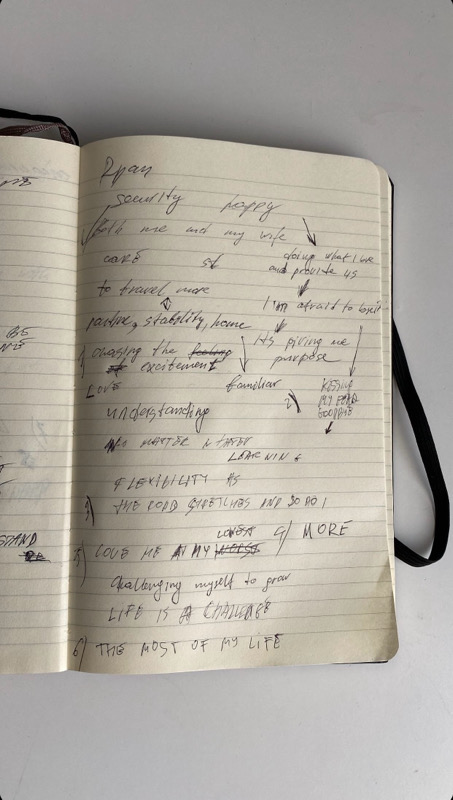 Ryan
security happy
Both me and my wife
care st
doing what I love
and provide us
to travel more
I'm afraid to lose it
routine, stability, home
It's giving me
purpose
1) chasing the feeling
excitement
LOVE familiar
2) KISSING
MY FEAR
GOODBYE
understanding
NO MATTER
LEARNING
FLEXIBILITY AS
3) THE ROAD STRETCHES AND SO DO I
LOWEST
4) MORE
5) LOVE ME AT MY WORST
challenging myself to grow
LIFE IS A CHALLENGE
6) THE MOST OF MY LIFE
BE
STAND